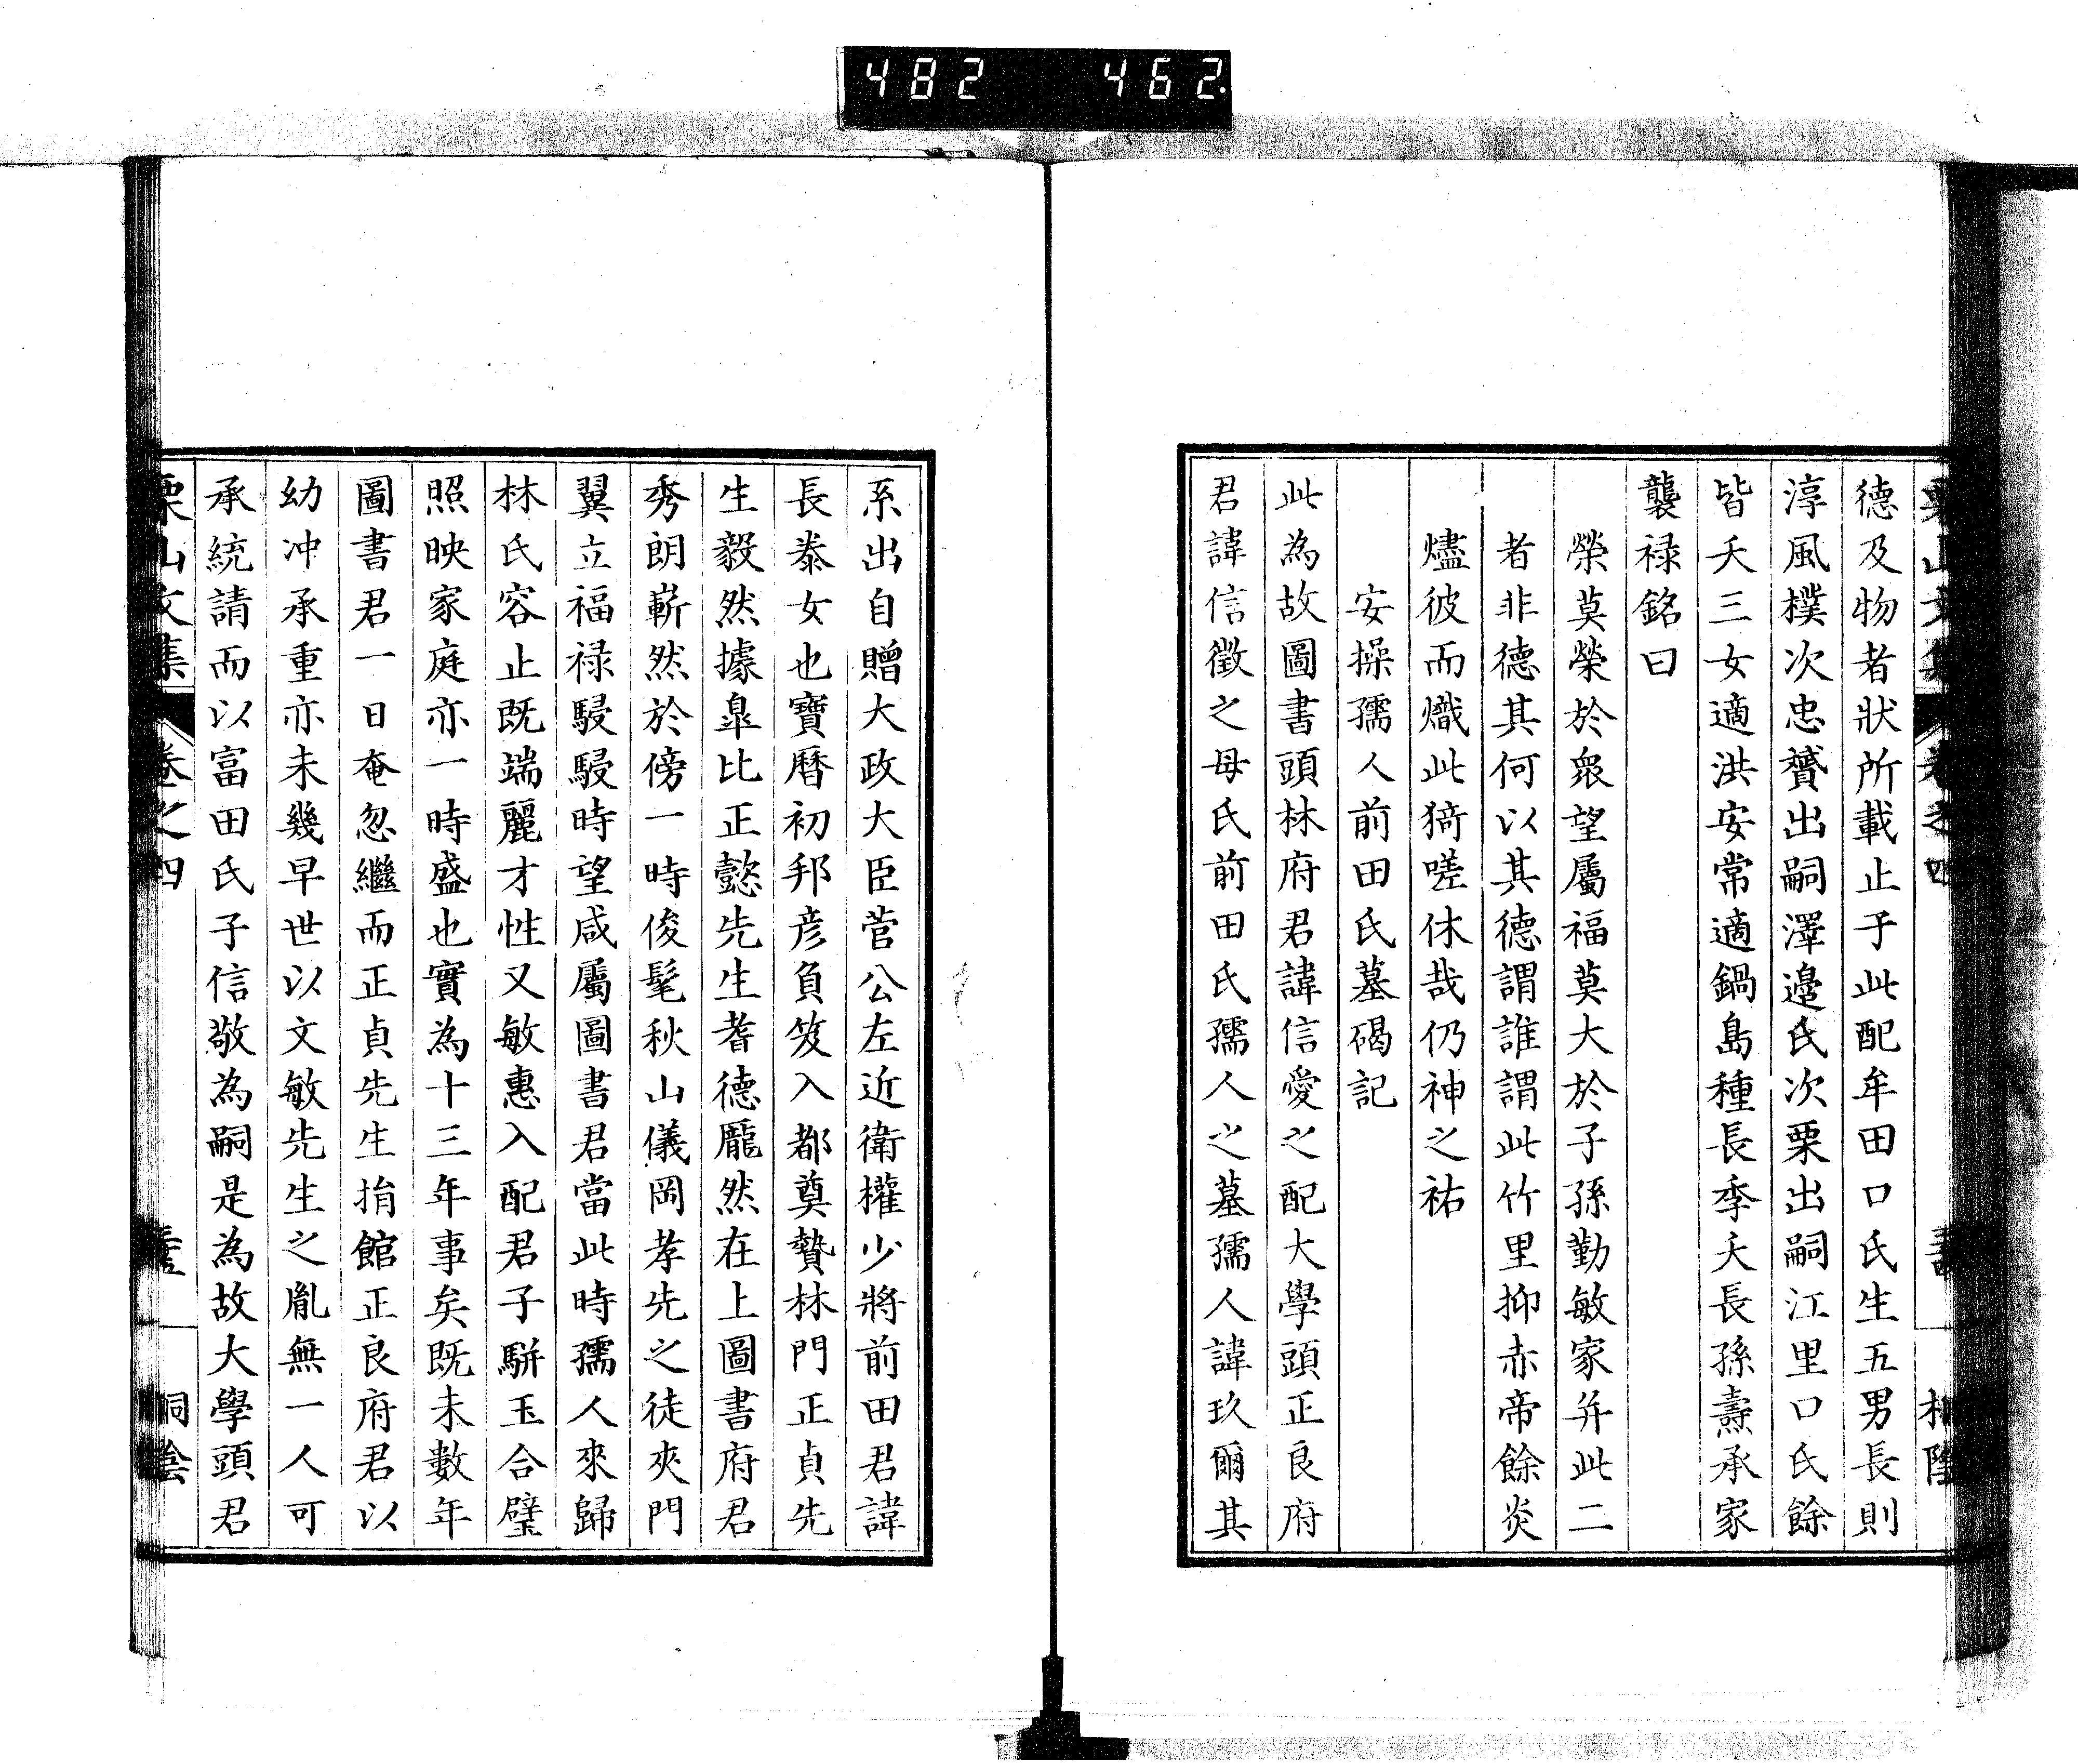 482 462.
德及物者狀所載止于此配牟田口氏生五男長則
淳風樸次忠贇出嗣澤邉氏次栗出嗣江里口氏餘
皆夭三女適洪安常適鍋島種長季夭長孫壽承家
襲禄銘曰
榮莫榮於衆望屬福莫大於子孫勤敏家并此二
者非德其何以其德謂誰謂此竹里抑赤帝餘炎
燼彼而熾此猗嗟休哉仍神之祐
安操孺人前田氏墓碣記
此為故圖書頭林府君諱信愛之配大學頭正良府
君諱信徵之母氏前田氏孺人之墓孺人諱玖爾其
系出自贈大政大臣菅公左近衛權少將前田君諱
長泰女也寶曆初邦彦負笈入都奠贄林門正貞先
生毅然據皐比正懿先生耆德龎然在上圖書府君
秀朗嶄然於傍一時俊髦秋山儀岡孝先之徒夾門
翼立福禄駸駸時望咸屬圖書君當此時孺人來歸
林氏容止既端麗才性又敏惠入配君子駢玉合璧
照映家庭亦一時盛也實為十三年事矣既未數年
圖書君一日奄忽繼而正貞先生捐館正良府君以
幼冲承重亦未幾早世以文敏先生之胤無一人可
承統請而以富田氏子信敬為嗣是為故大學頭君
栗山文集 卷之四